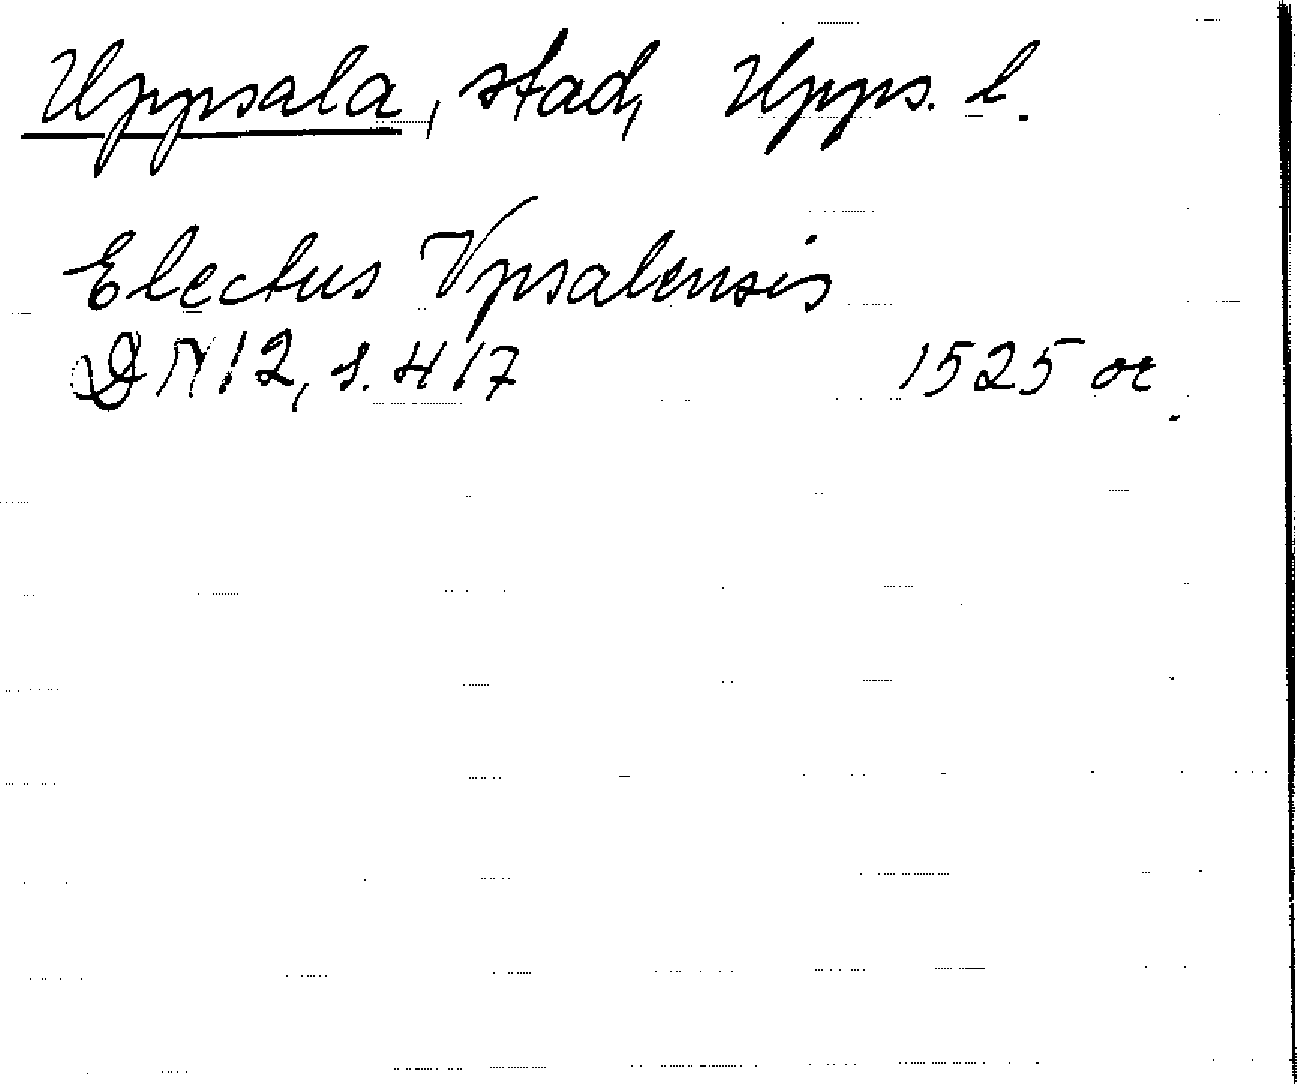 Uppsala, stad, Upps. l.
Electus Vpsalensis
DN 12, s. 417 1525 or.